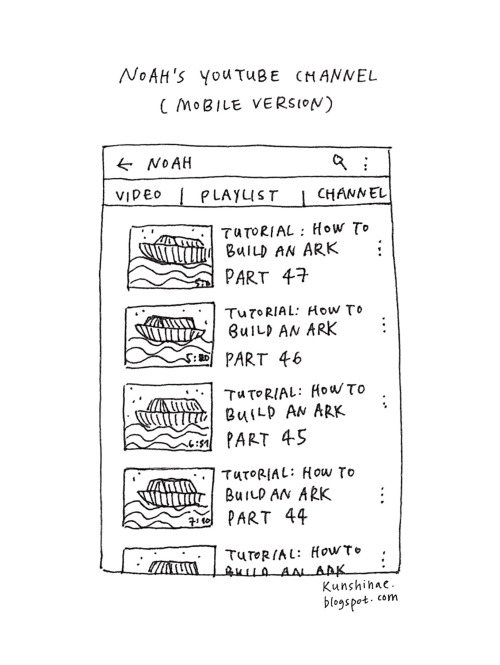 NOAH'S YOUTUBE CHANNEL
(MOBILE VERSION)
← NOAH
VIDEO | PLAYLIST | CHANNEL
TUTORIAL: HOW TO
BUILD AN ARK
PART 47
TUTORIAL: HOW TO
BUILD AN ARK
5:20
PART 46
TUTORIAL: HOW TO
BUILD AN ARK
PART 45
6:51
TUTORIAL: HOW TO
BUILD AN ARK
PART 44
7:10
TUTORIAL: HOW TO
BUILD AN ARK
Kunshinae.
blogspot.com